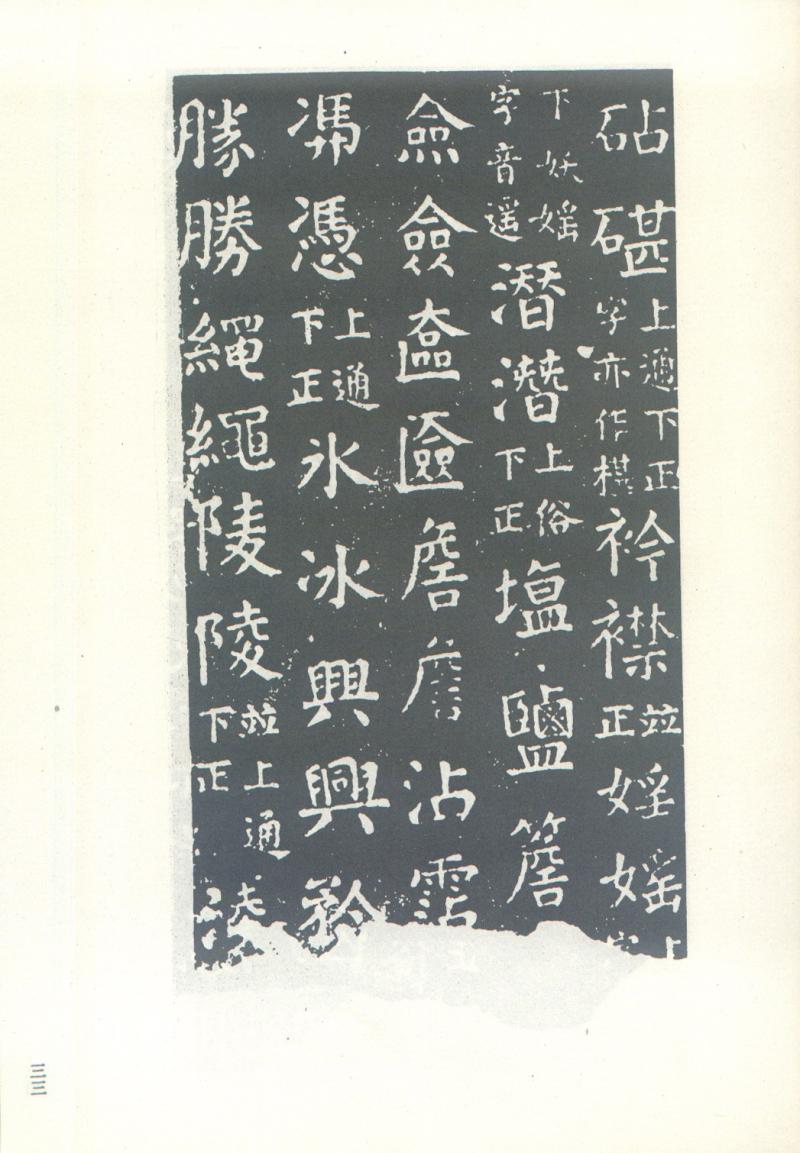 砧碪上通下正字亦作椹衿襟並正婬媱上字
下妖媱字音遥潜潛上俗下正塩鹽簷
僉奩匳詹沾霑
馮憑上通下正氷冰興興矜
勝勝繩繩陵陵並上通下正
三三